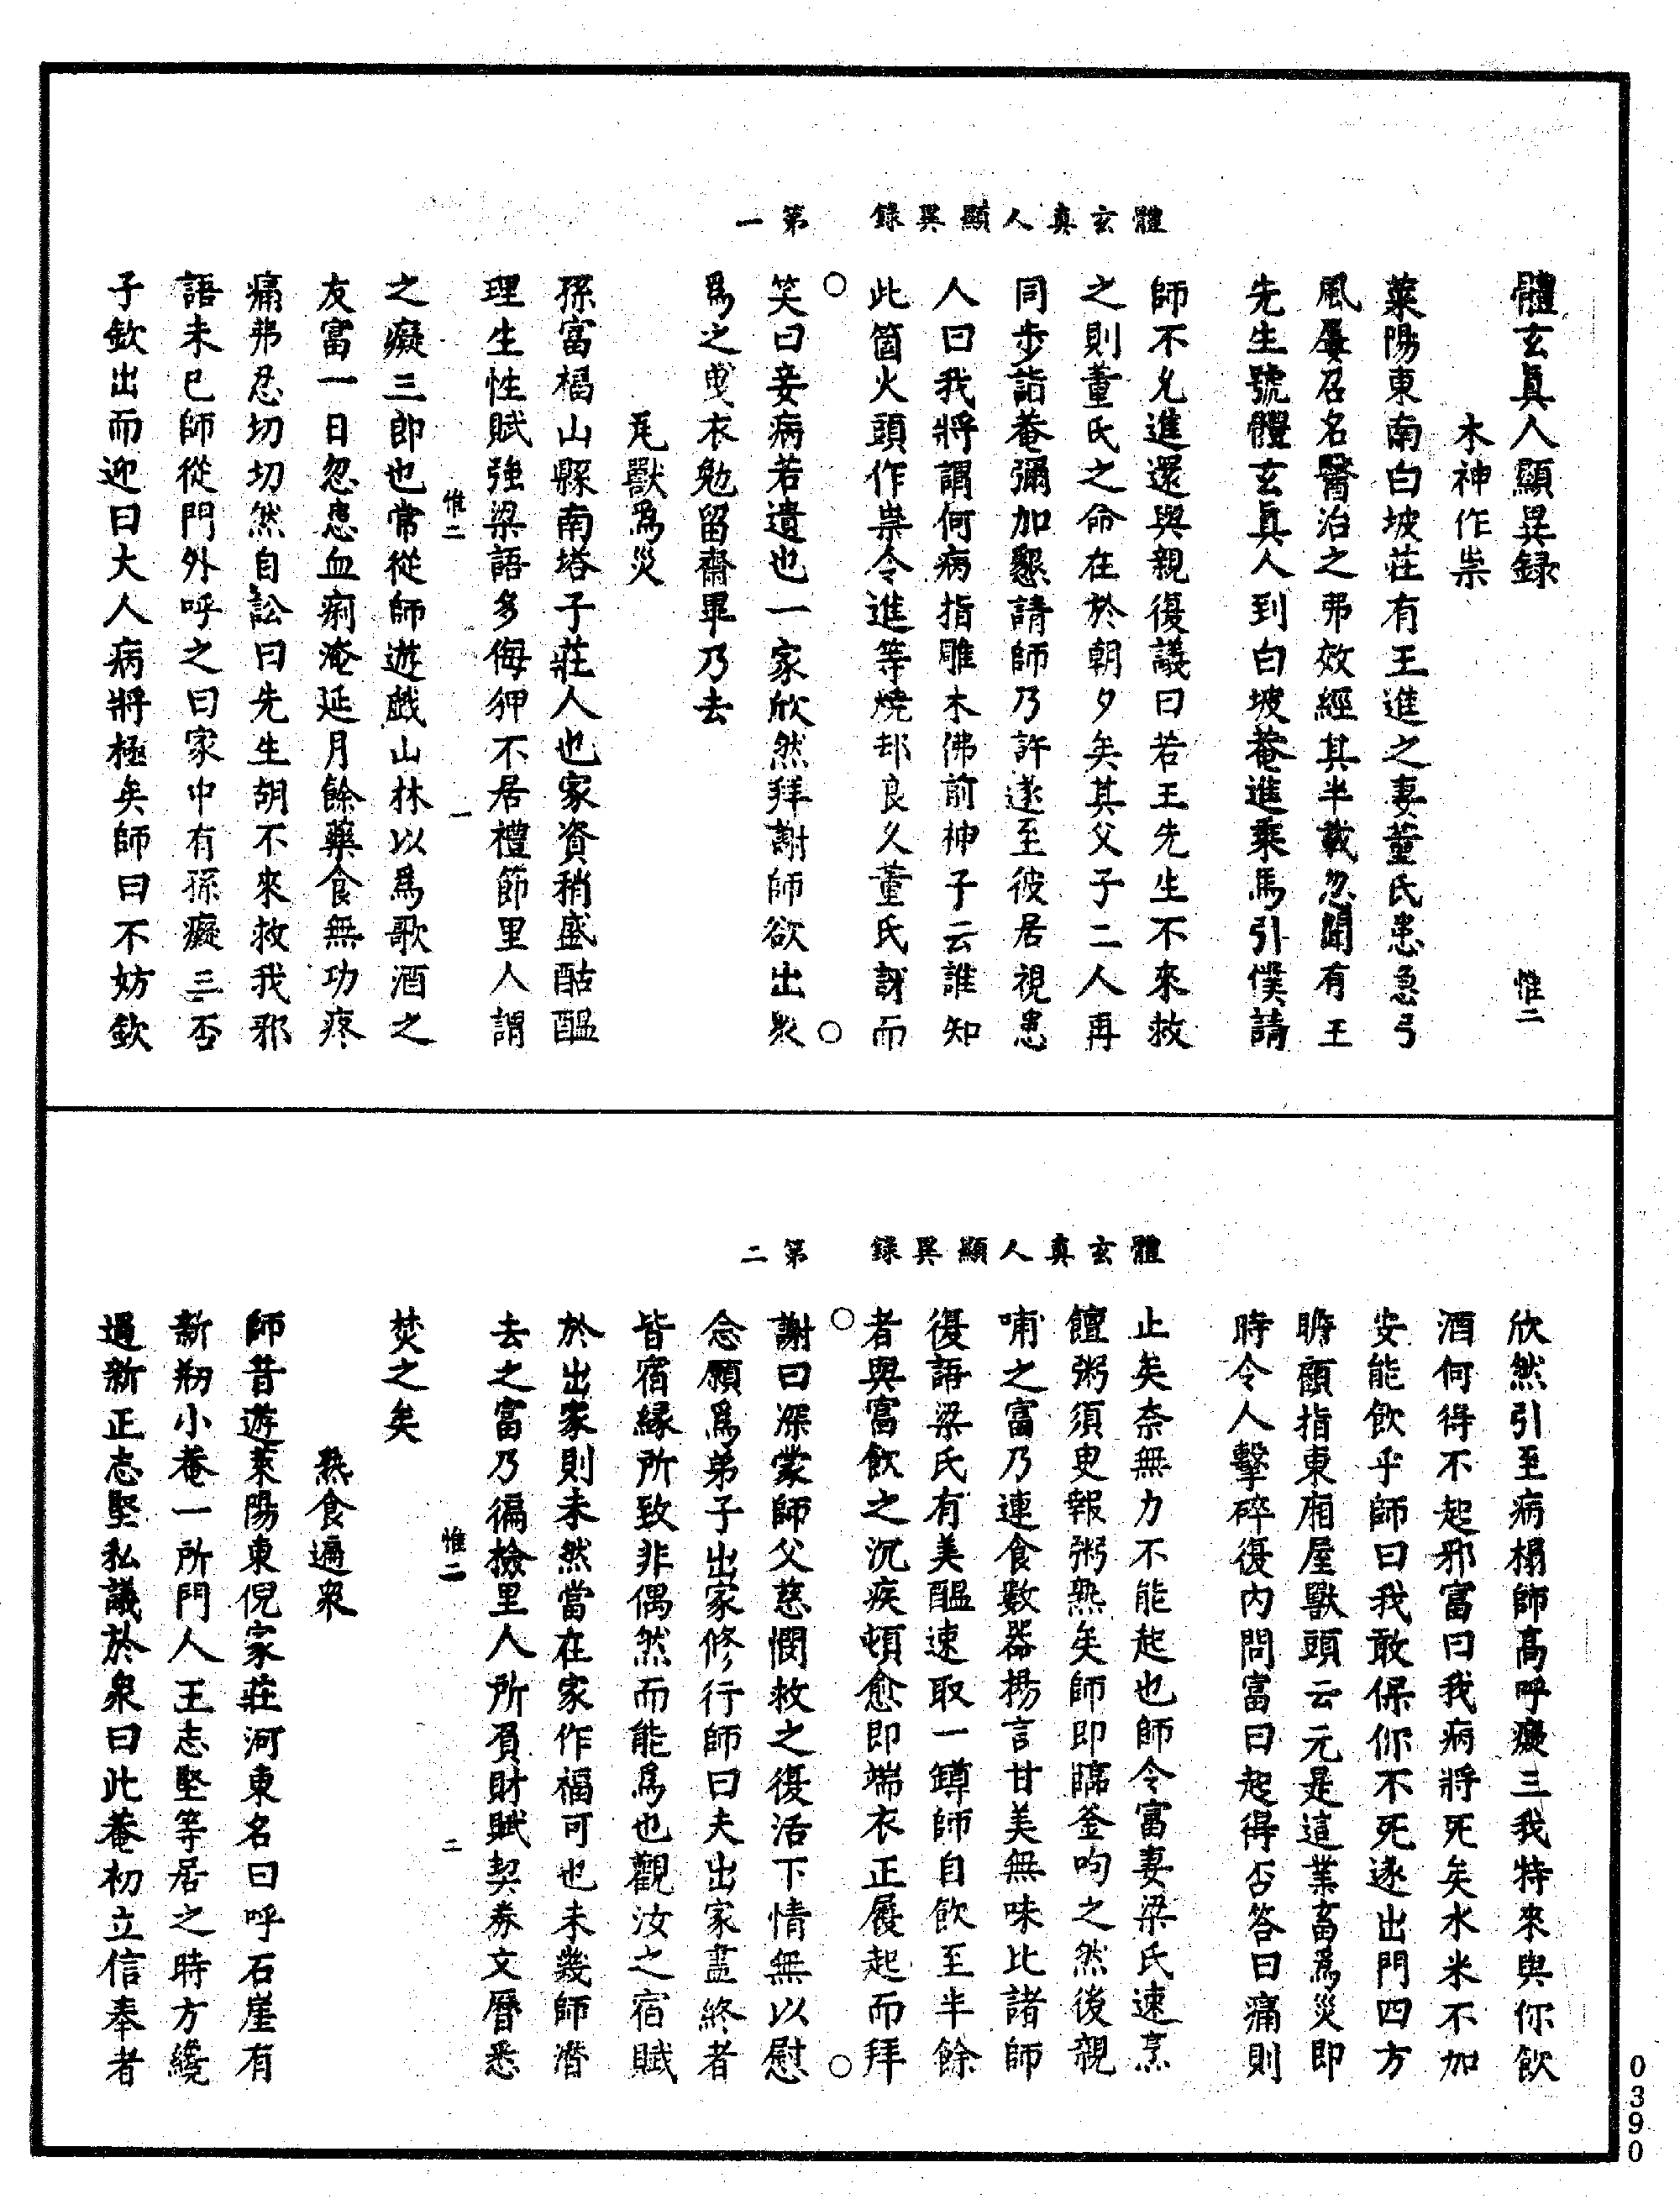 體玄真人顯異錄　第一
體玄真人顯異録　惟二
木神作祟
萊陽東南白坡莊有王進之妻董氏患急弓
風屢召名醫治之弗效經其半載忽聞有王
先生號體玄真人到白坡菴進乘馬引僕請
師不允進還與親復議曰若王先生不來救
之則董氏之命在於朝夕矣其父子二人再
同步詣菴彌加懇請師乃許遂至彼居視患
人曰我將謂何病指雕木佛前神子云誰知
此箇火頭作祟令進等燒却良久董氏訝而
笑曰妾病若遺也一家欣然拜謝師欲出衆
爲之曳衣勉留齋畢乃去
瓦獸爲災
孫富楬山縣南塔子莊人也家資稍盛酤醞
理生性賦強梁語多侮狎不居禮節里人謂
惟二　一
之癡三郎也常從師遊戲山林以爲歌酒之
友富一日忽患血痢淹延月餘藥食無功疼
痛弗忍切切然自訟曰先生胡不來救我邪
語未已師從門外呼之曰家中有孫癡三否
子欽出而迎曰大人病將極矣師曰不妨欽
體玄真人顯異錄　第二
欣然引至病榻師高呼癡三我特來與你飲
酒何得不起邪富曰我病將死矣水米不加
安能飲乎師曰我敢保你不死遂出門四方
瞻顧指東廂屋獸頭云元是這業畜爲災即
時令人擊碎復內問富曰起得否答曰痛則
止矣奈無力不能起也師令富妻梁氏速烹
饘粥須臾報粥熟矣師即臨釜呴之然後親
哺之富乃連食數器揚言甘美無味比諸師
復語梁氏有美醞速取一罇師自飲至半餘
者與富飲之沉疾頓愈即端衣正屐起而拜
謝曰深蒙師父慈憫救之復活下情無以慰
念願爲弟子出家修行師曰夫出家盡終者
皆宿緣所致非偶然而能爲也觀汝之宿賦
於出家則未然當在家作福可也未幾師潛
去之富乃徧撿里人所負財賦契券文曆悉
惟二　二
焚之矣
熟食遍衆
師昔遊萊陽東倪家莊河東名曰呼石崖有
新剏小菴一所門人王志堅等居之時方纔
過新正志堅私議於衆曰此菴初立信奉者
0390